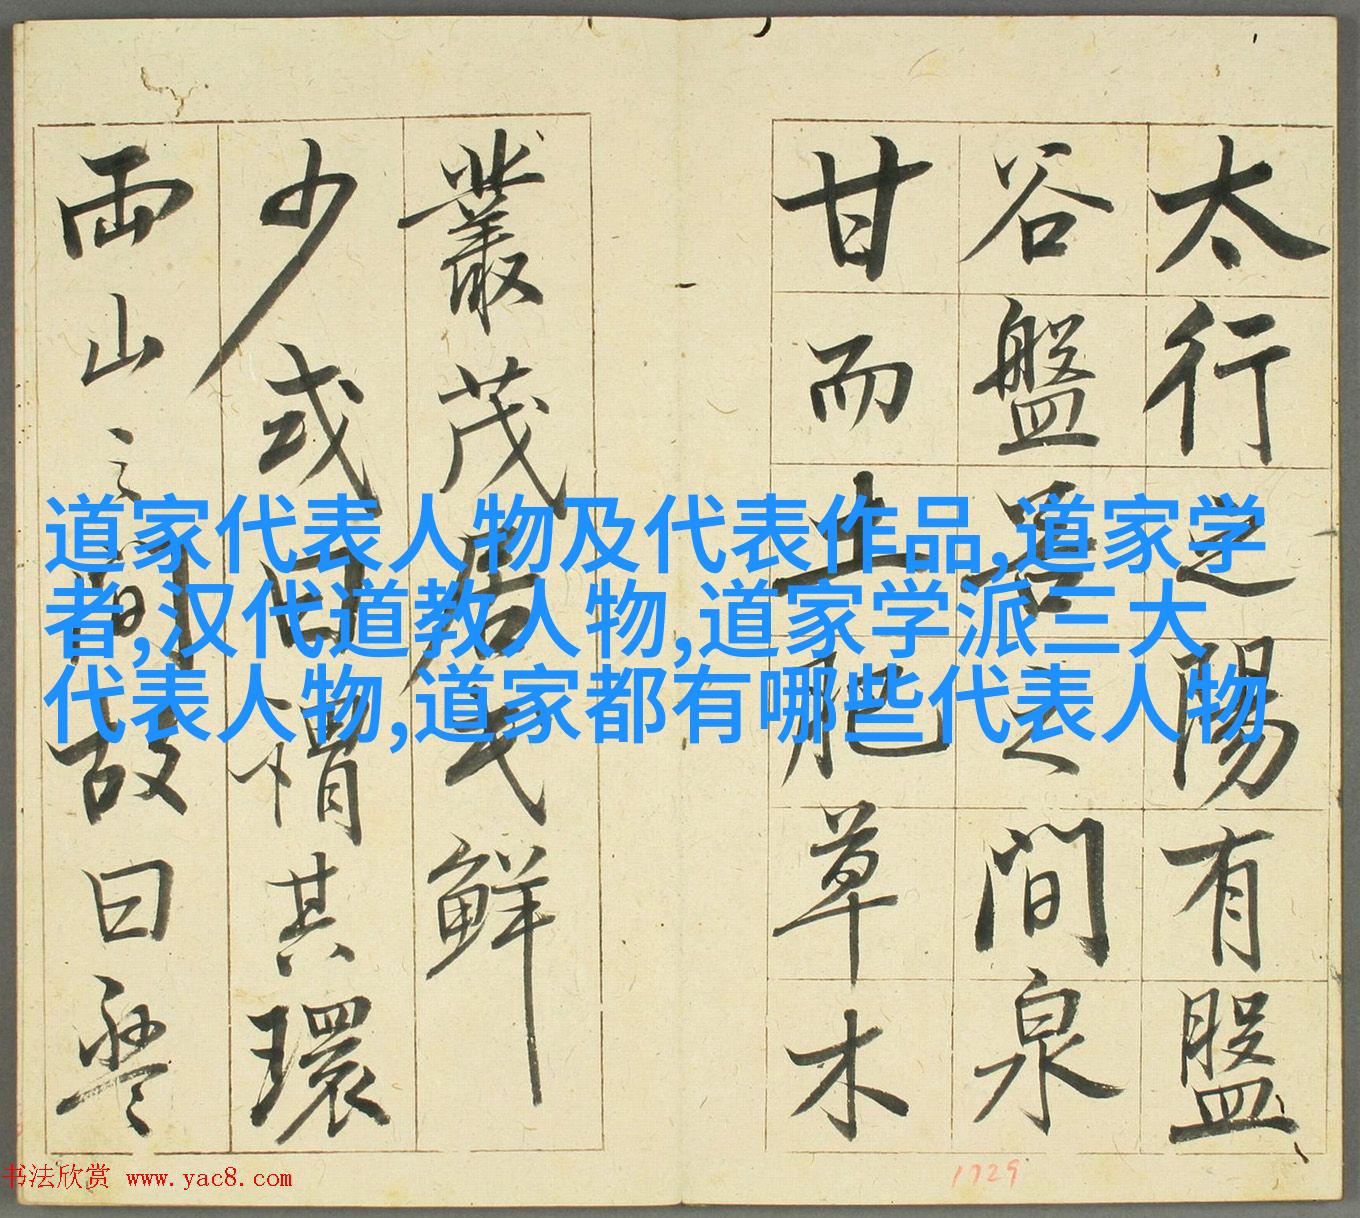 太行之陽有盤
谷盤之間泉
甘而土肥草木
叢茂居民鮮
少或曰謂其環
兩山之間故曰盤
道家代表人物及代表作品,道家学
者,汉代道教人物,道家学派三大
代表人物,道家都有哪些代表人物
书法欣赏 www.yac8.com
1729